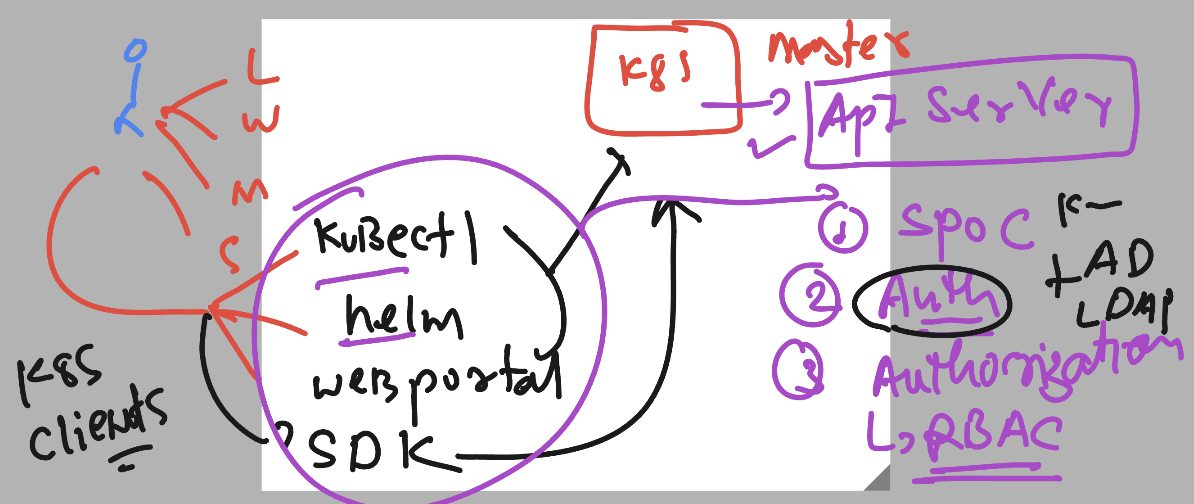 L
W
m
S
K8S
clients
kuBectl
helm
weB portal
SDK
K8S
master
ApI Server
1 SPOC
2 Auth
K
AD
LDAP
3 Authorization
RBAC